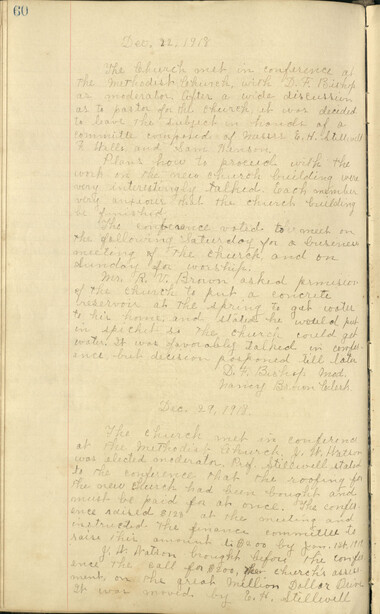 60
Dec. 22, 1918
The Church met in conference at
the Methodist Church, with D. F. Bishop
as moderator. After a wide discussion
as to pastor for the church, it was decided
to leave the subject in hands of a
committe composed of Messrs E. H. Stillwell
F. Wells and Sam
Plans how to proceed with the
work on the new church building were
very interestingly talked. Each member
very anxious that the church building
be finished.
The conference voted to meet on
the following Saturday for a buisness
meeting of the church, and on
Sunday for worship.
Mr. R. V. Brown asked permision
of the church to put a concrete
reservoir at the spring to get water
to his home, and stated he would put
in spicket so the church could get
water. It was favorably talked in confer-
ence but decision postponed till later
D. F. Bishop Mod.
Nancy Clerk
Dec. 29, 1918.
The church met in conference
at the Methodist Church. J. W. Watson
was elected moderator. Prof. Stillwell stated
to the conference that the roofing for
the new church had been bought and
must be paid for at once. The confer-
ence at the meeting and
instructed the finance committee to
raise this amount to $200 by Jan. 1st 1919
J. W. Watson brought before the confer-
ence the call for $200, the church's assess-
ment, on the great Million Dollar Drive
It was moved by E. H. Stillwell